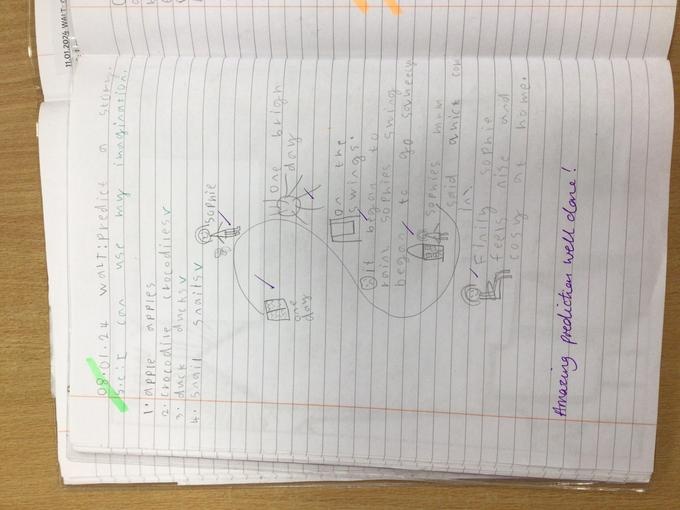 11.01.2024 WALT:
08.01.24 WALT: Predict a story.
I can use my imagination.
1. apple apples
2. crocodile crocodiles
3. duck ducks
4. snail snails
Sophie
one
day
one brigh
day
on the
swings.
it began to
rain sophies swing
began to go
Sophies mum
said quick com
in.
Finily sophie
feels nise and
cosy at home.
Amazing prediction well done!